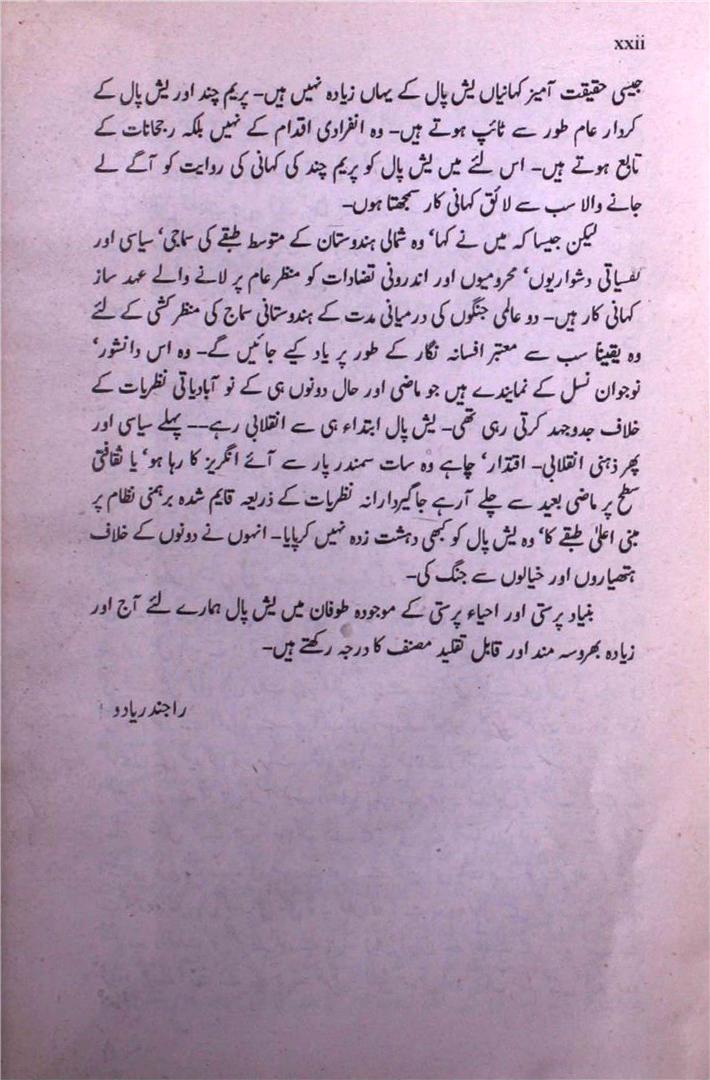 xxii
جیسی حقیقت آمیز کہانیاں یش پال کے یہاں زیادہ نہیں ہیں۔ پریم چند اور یش پال کے
کردار عام طور سے ٹائپ ہوتے ہیں۔ وہ انفرادی اقدام کے نہیں بلکہ رجحانات کے
تابع ہوتے ہیں۔ اس لئے میں یش پال کو پریم چند کی کہانی کی روایت کو آگے لے
جانے والا سب سے لائق کہانی کار سمجھتا ہوں۔
لیکن جیسا کہ میں نے کہا، وہ شمالی ہندوستان کے متوسط طبقے کی سماجی، سیاسی اور
نفسیاتی دشواریوں، محرومیوں اور اندرونی تضادات کو منظر عام پر لانے والے عہد ساز
کہانی کار ہیں۔ دو عالمی جنگوں کی درمیانی مدت کے ہندوستانی سماج کی منظر کشی کے لئے
وہ یقیناً سب سے معتبر افسانہ نگار کے طور پر یاد کیے جائیں گے۔ وہ اس دانشور،
نوجوان نسل کے نمایندے ہیں جو ماضی اور حال دونوں ہی کے نو آبادیاتی نظریات کے
خلاف جدوجہد کرتی رہی تھی۔ یش پال ابتداء ہی سے انقلابی رہے۔۔ پہلے سیاسی اور
پھر ذہنی انقلابی۔ اقتدار، چاہے وہ سات سمندر پار سے آئے انگریز کا رہا ہو، یا ثقافتی
سطح پر ماضی بعید سے چلے آرہے جاگیردارانہ نظریات کے ذریعہ قایم شدہ برہمنی نظام پر
مبنی اعلیٰ طبقے کا، وہ یش پال کو کبھی دہشت زدہ نہیں کرپایا۔ انہوں نے دونوں کے خلاف
ہتھیاروں اور خیالوں سے جنگ کی۔
بنیاد پرستی اور احیاء پرستی کے موجودہ طوفان میں یش پال ہمارے لئے آج اور
زیادہ بھروسہ مند اور قابل تقلید مصنف کا درجہ رکھتے ہیں۔
راجندر یادو